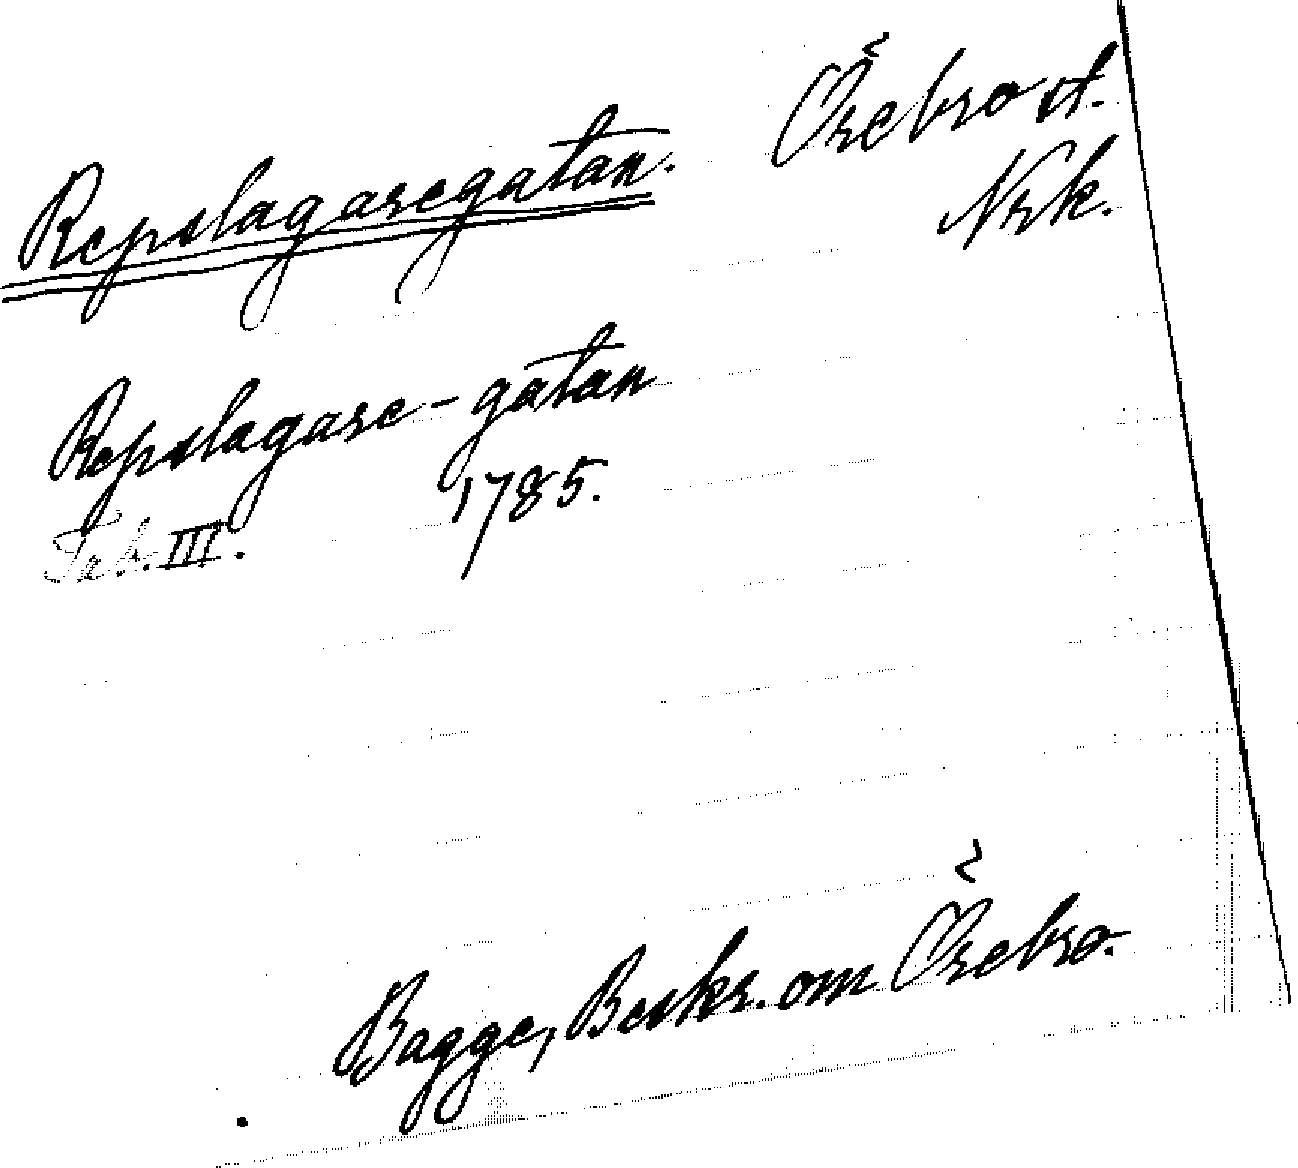 Repslagaregatan. Örebro st.
Nrk.
Repslagare-gatan
1785.
Tab. III.
Bagge, Beskr. om Örebro.